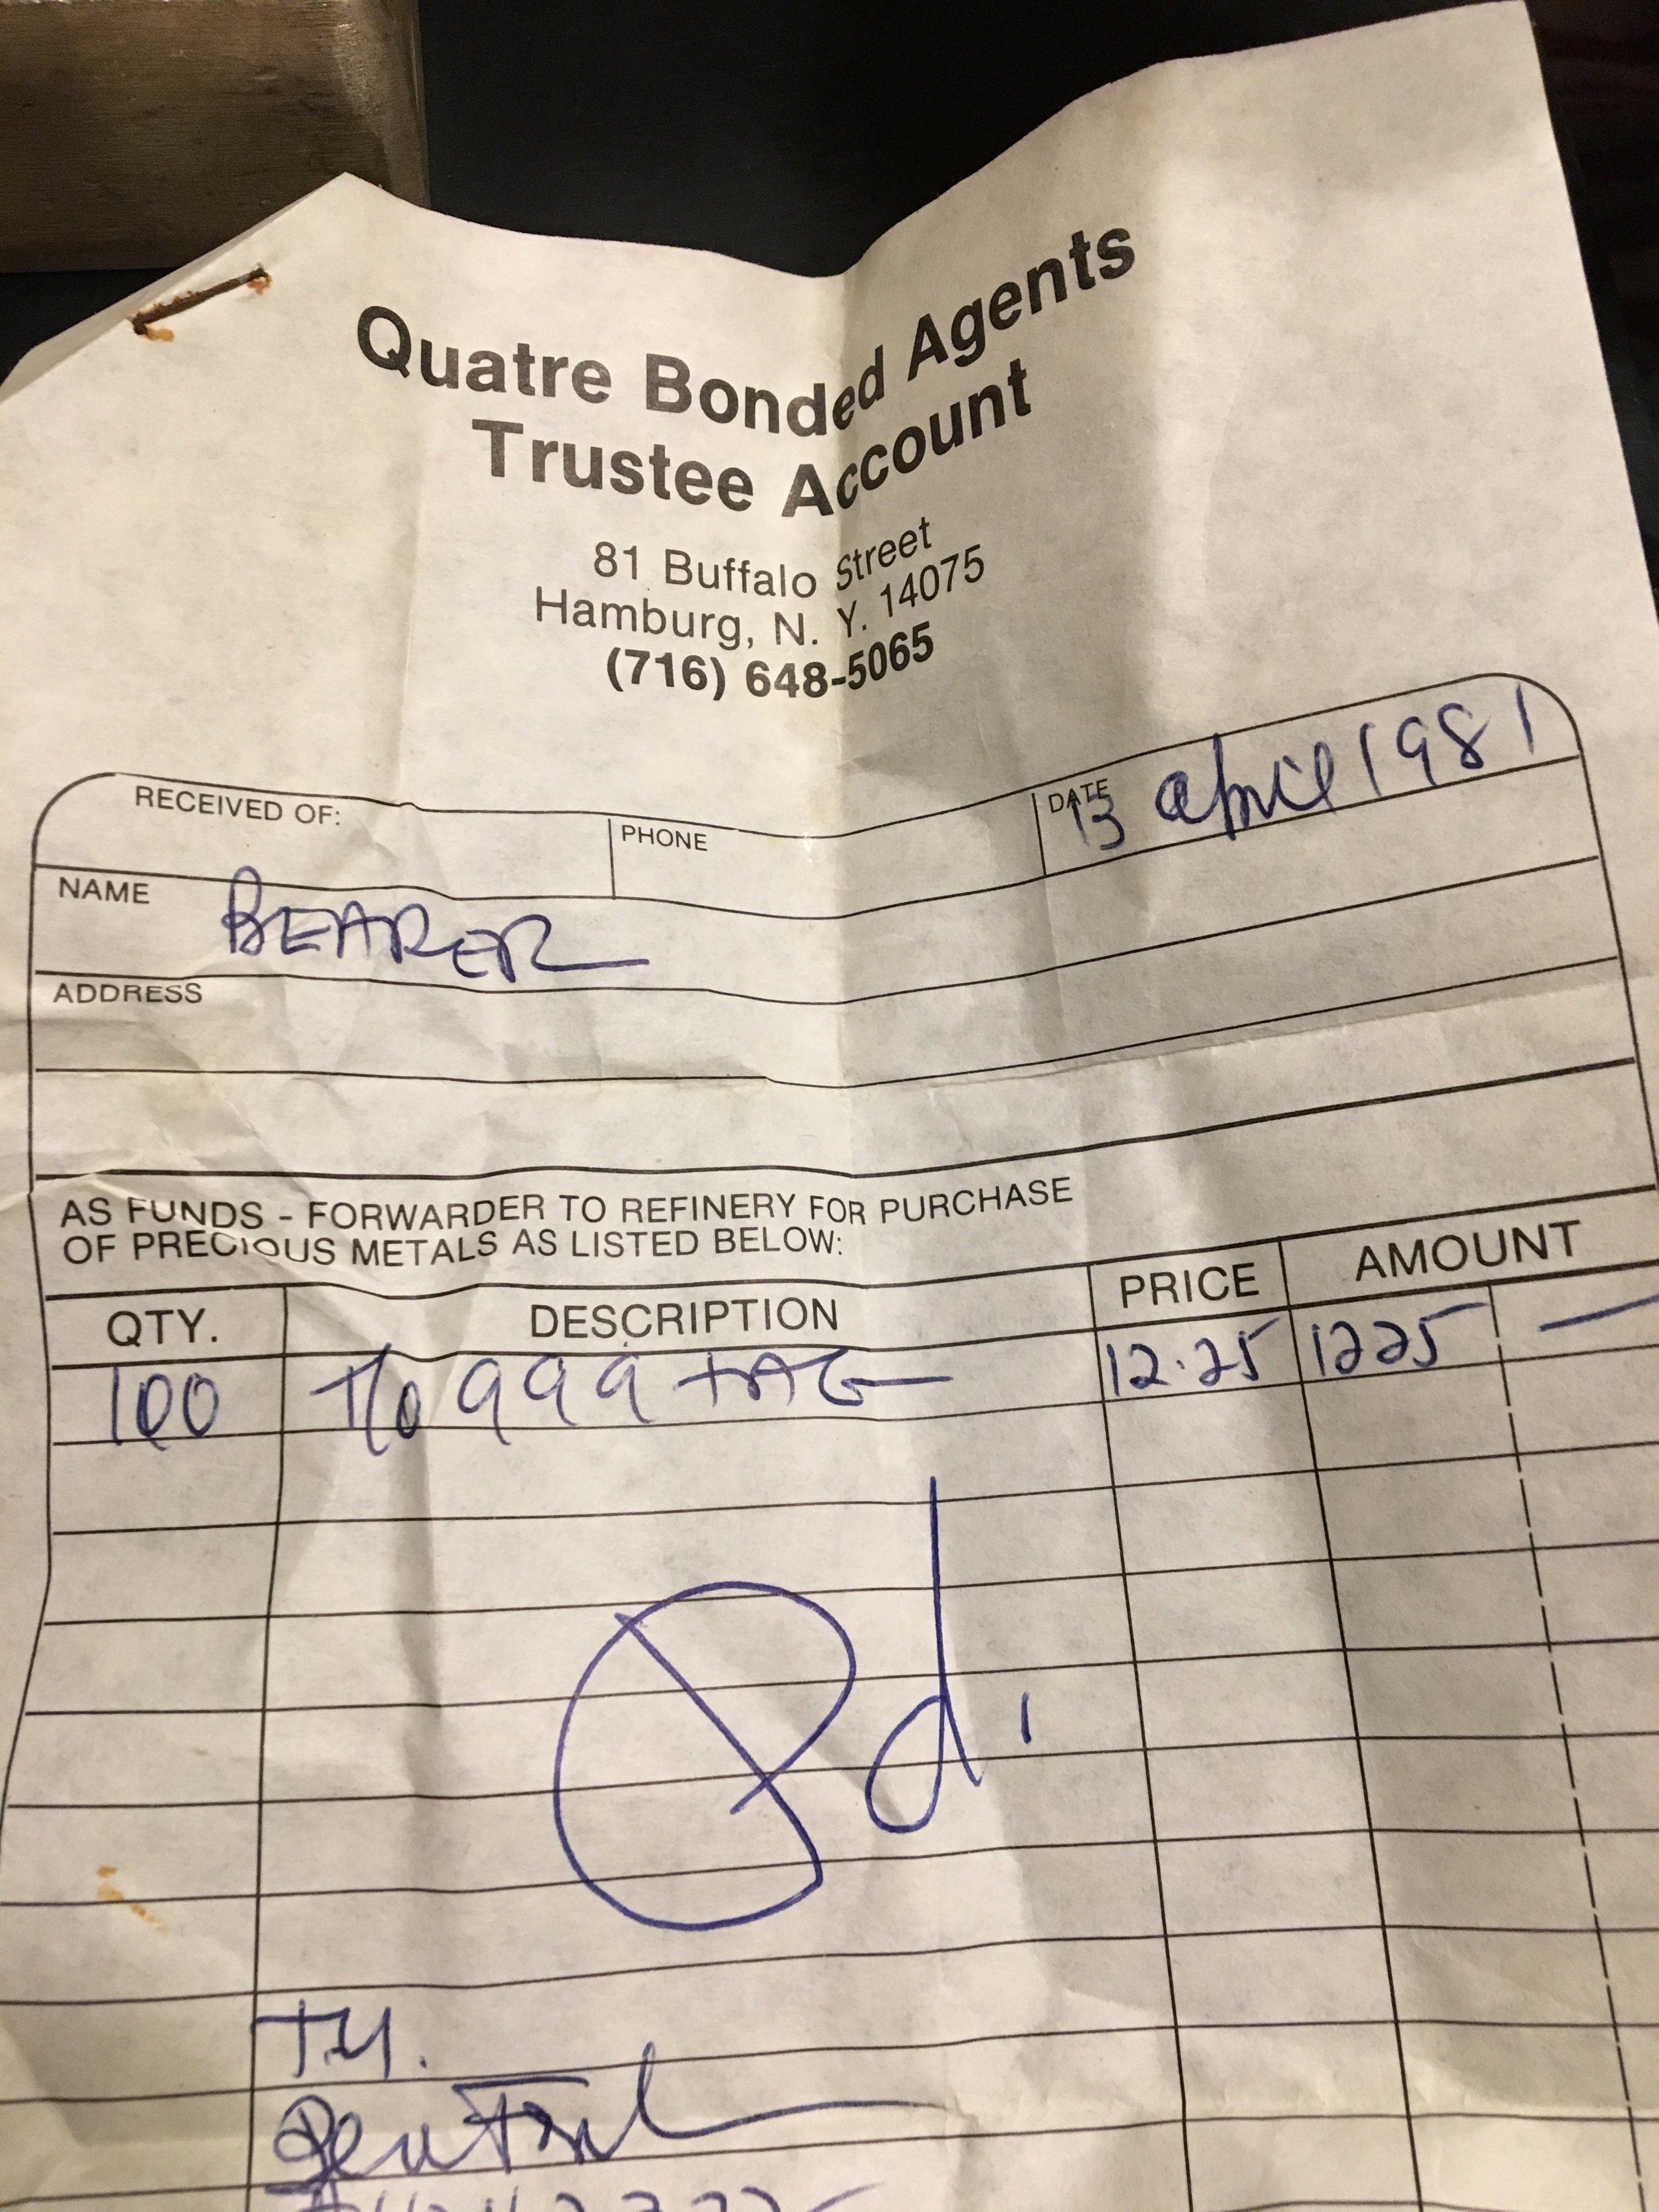 Quatre Bonded Agents
Trustee Account
81 Buffalo Street
Hamburg, N. Y. 14075
(716) 648-5065
RECEIVED OF:
PHONE
DATE 13 april 1981
NAME BEARER
ADDRESS
AS FUNDS - FORWARDER TO REFINERY FOR PURCHASE
OF PRECIOUS METALS AS LISTED BELOW:
QTY. DESCRIPTION PRICE AMOUNT
100 T/o 999+ AG 12.25 1225 —
Pd.
T.Y.